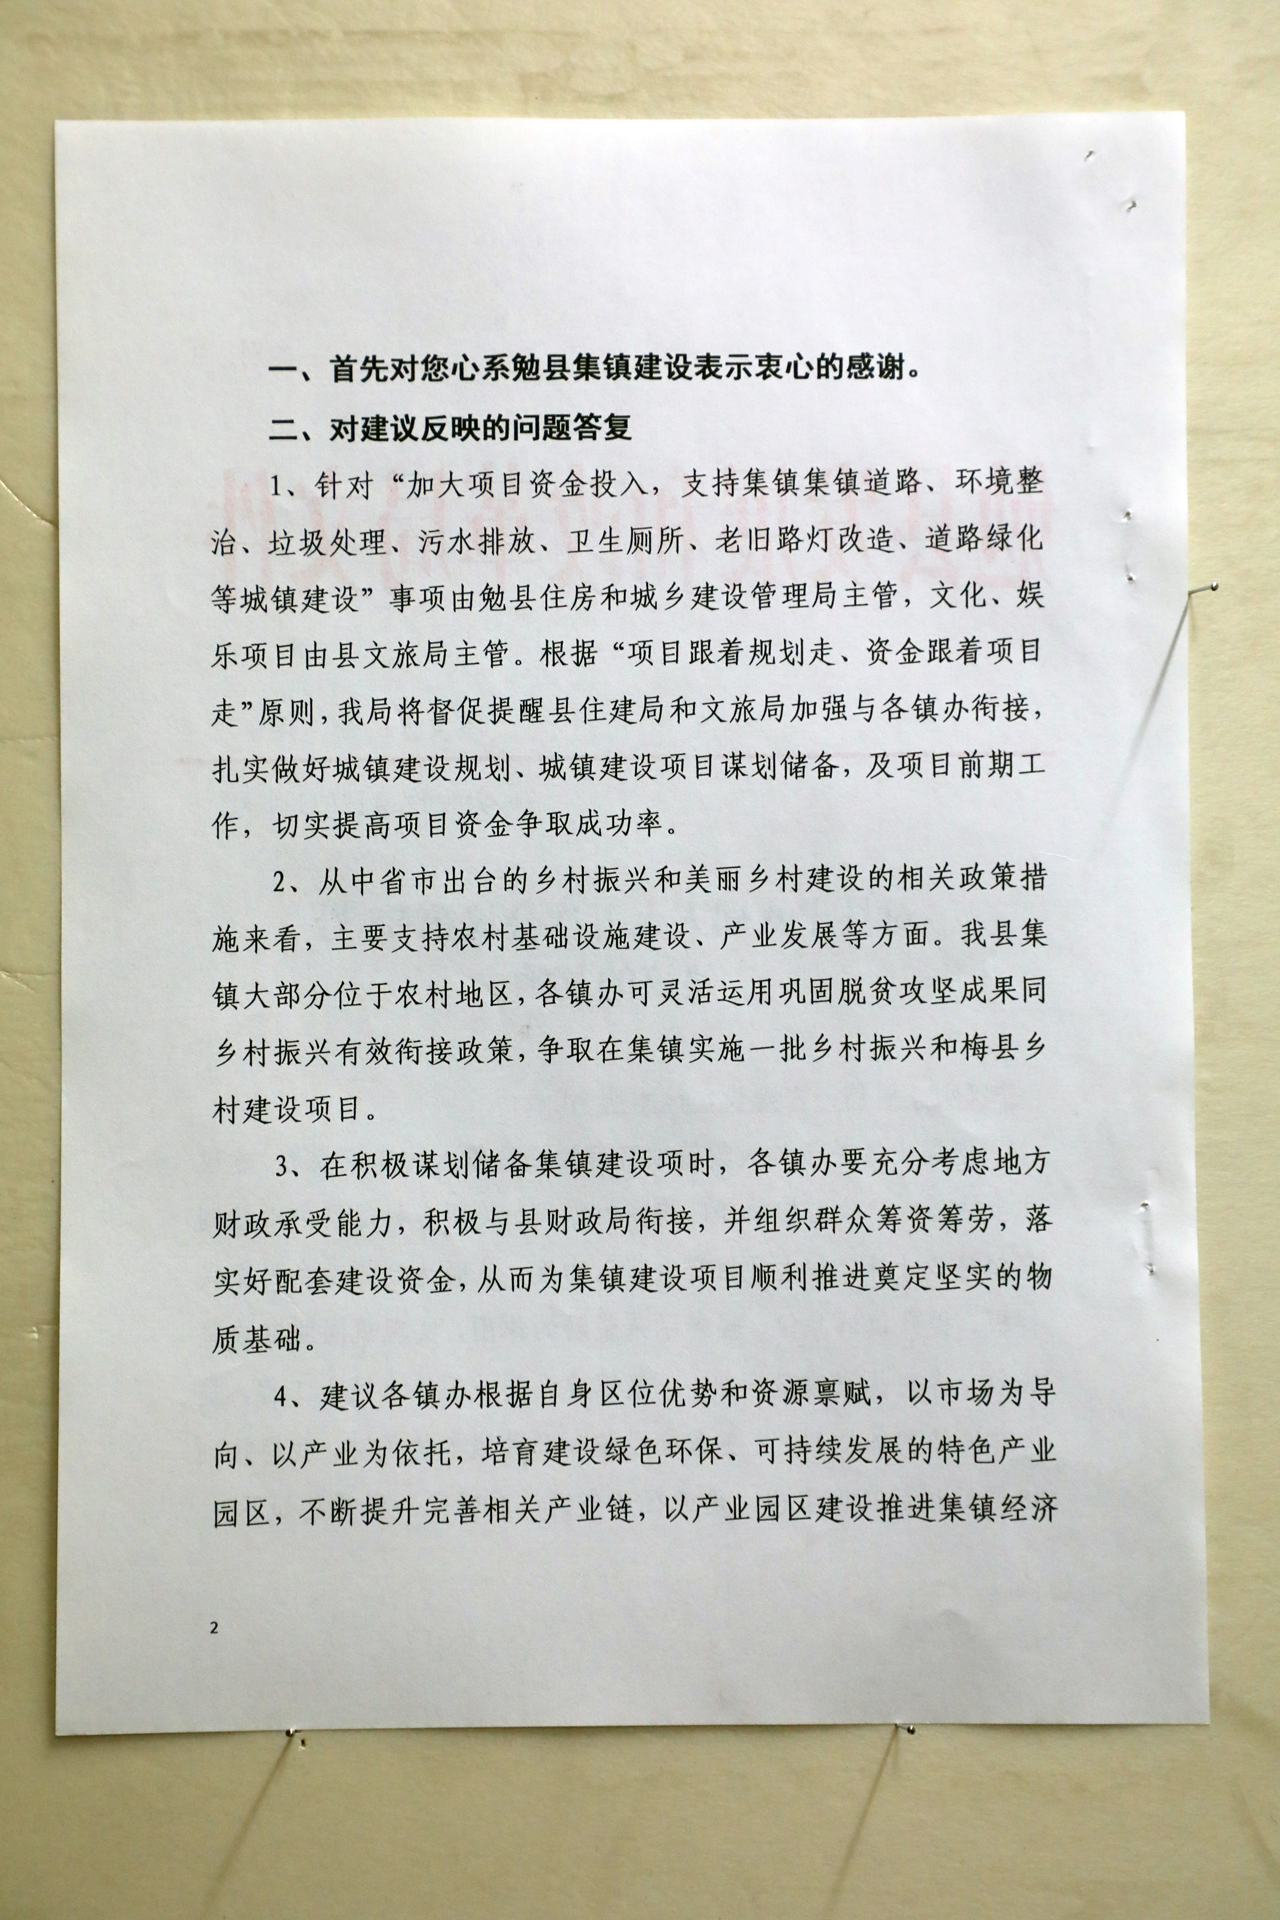 一、首先对您心系勉县集镇建设表示衷心的感谢。
二、对建议反映的问题答复
1、针对“加大项目资金投入，支持集镇集镇道路、环境整
治、垃圾处理、污水排放、卫生厕所、老旧路灯改造、道路绿化
等城镇建设”事项由勉县住房和城乡建设管理局主管，文化、娱
乐项目由县文旅局主管。根据“项目跟着规划走、资金跟着项目
走”原则，我局将督促提醒县住建局和文旅局加强与各镇办衔接，
扎实做好城镇建设规划、城镇建设项目谋划储备，及项目前期工
作，切实提高项目资金争取成功率。
2、从中省市出台的乡村振兴和美丽乡村建设的相关政策措
施来看，主要支持农村基础设施建设、产业发展等方面。我县集
镇大部分位于农村地区，各镇办可灵活运用巩固脱贫攻坚成果同
乡村振兴有效衔接政策，争取在集镇实施一批乡村振兴和梅县乡
村建设项目。
3、在积极谋划储备集镇建设项时，各镇办要充分考虑地方
财政承受能力，积极与县财政局衔接，并组织群众筹资筹劳，落
实好配套建设资金，从而为集镇建设项目顺利推进奠定坚实的物
质基础。
4、建议各镇办根据自身区位优势和资源禀赋，以市场为导
向、以产业为依托，培育建设绿色环保、可持续发展的特色产业
园区，不断提升完善相关产业链，以产业园区建设推进集镇经济
2